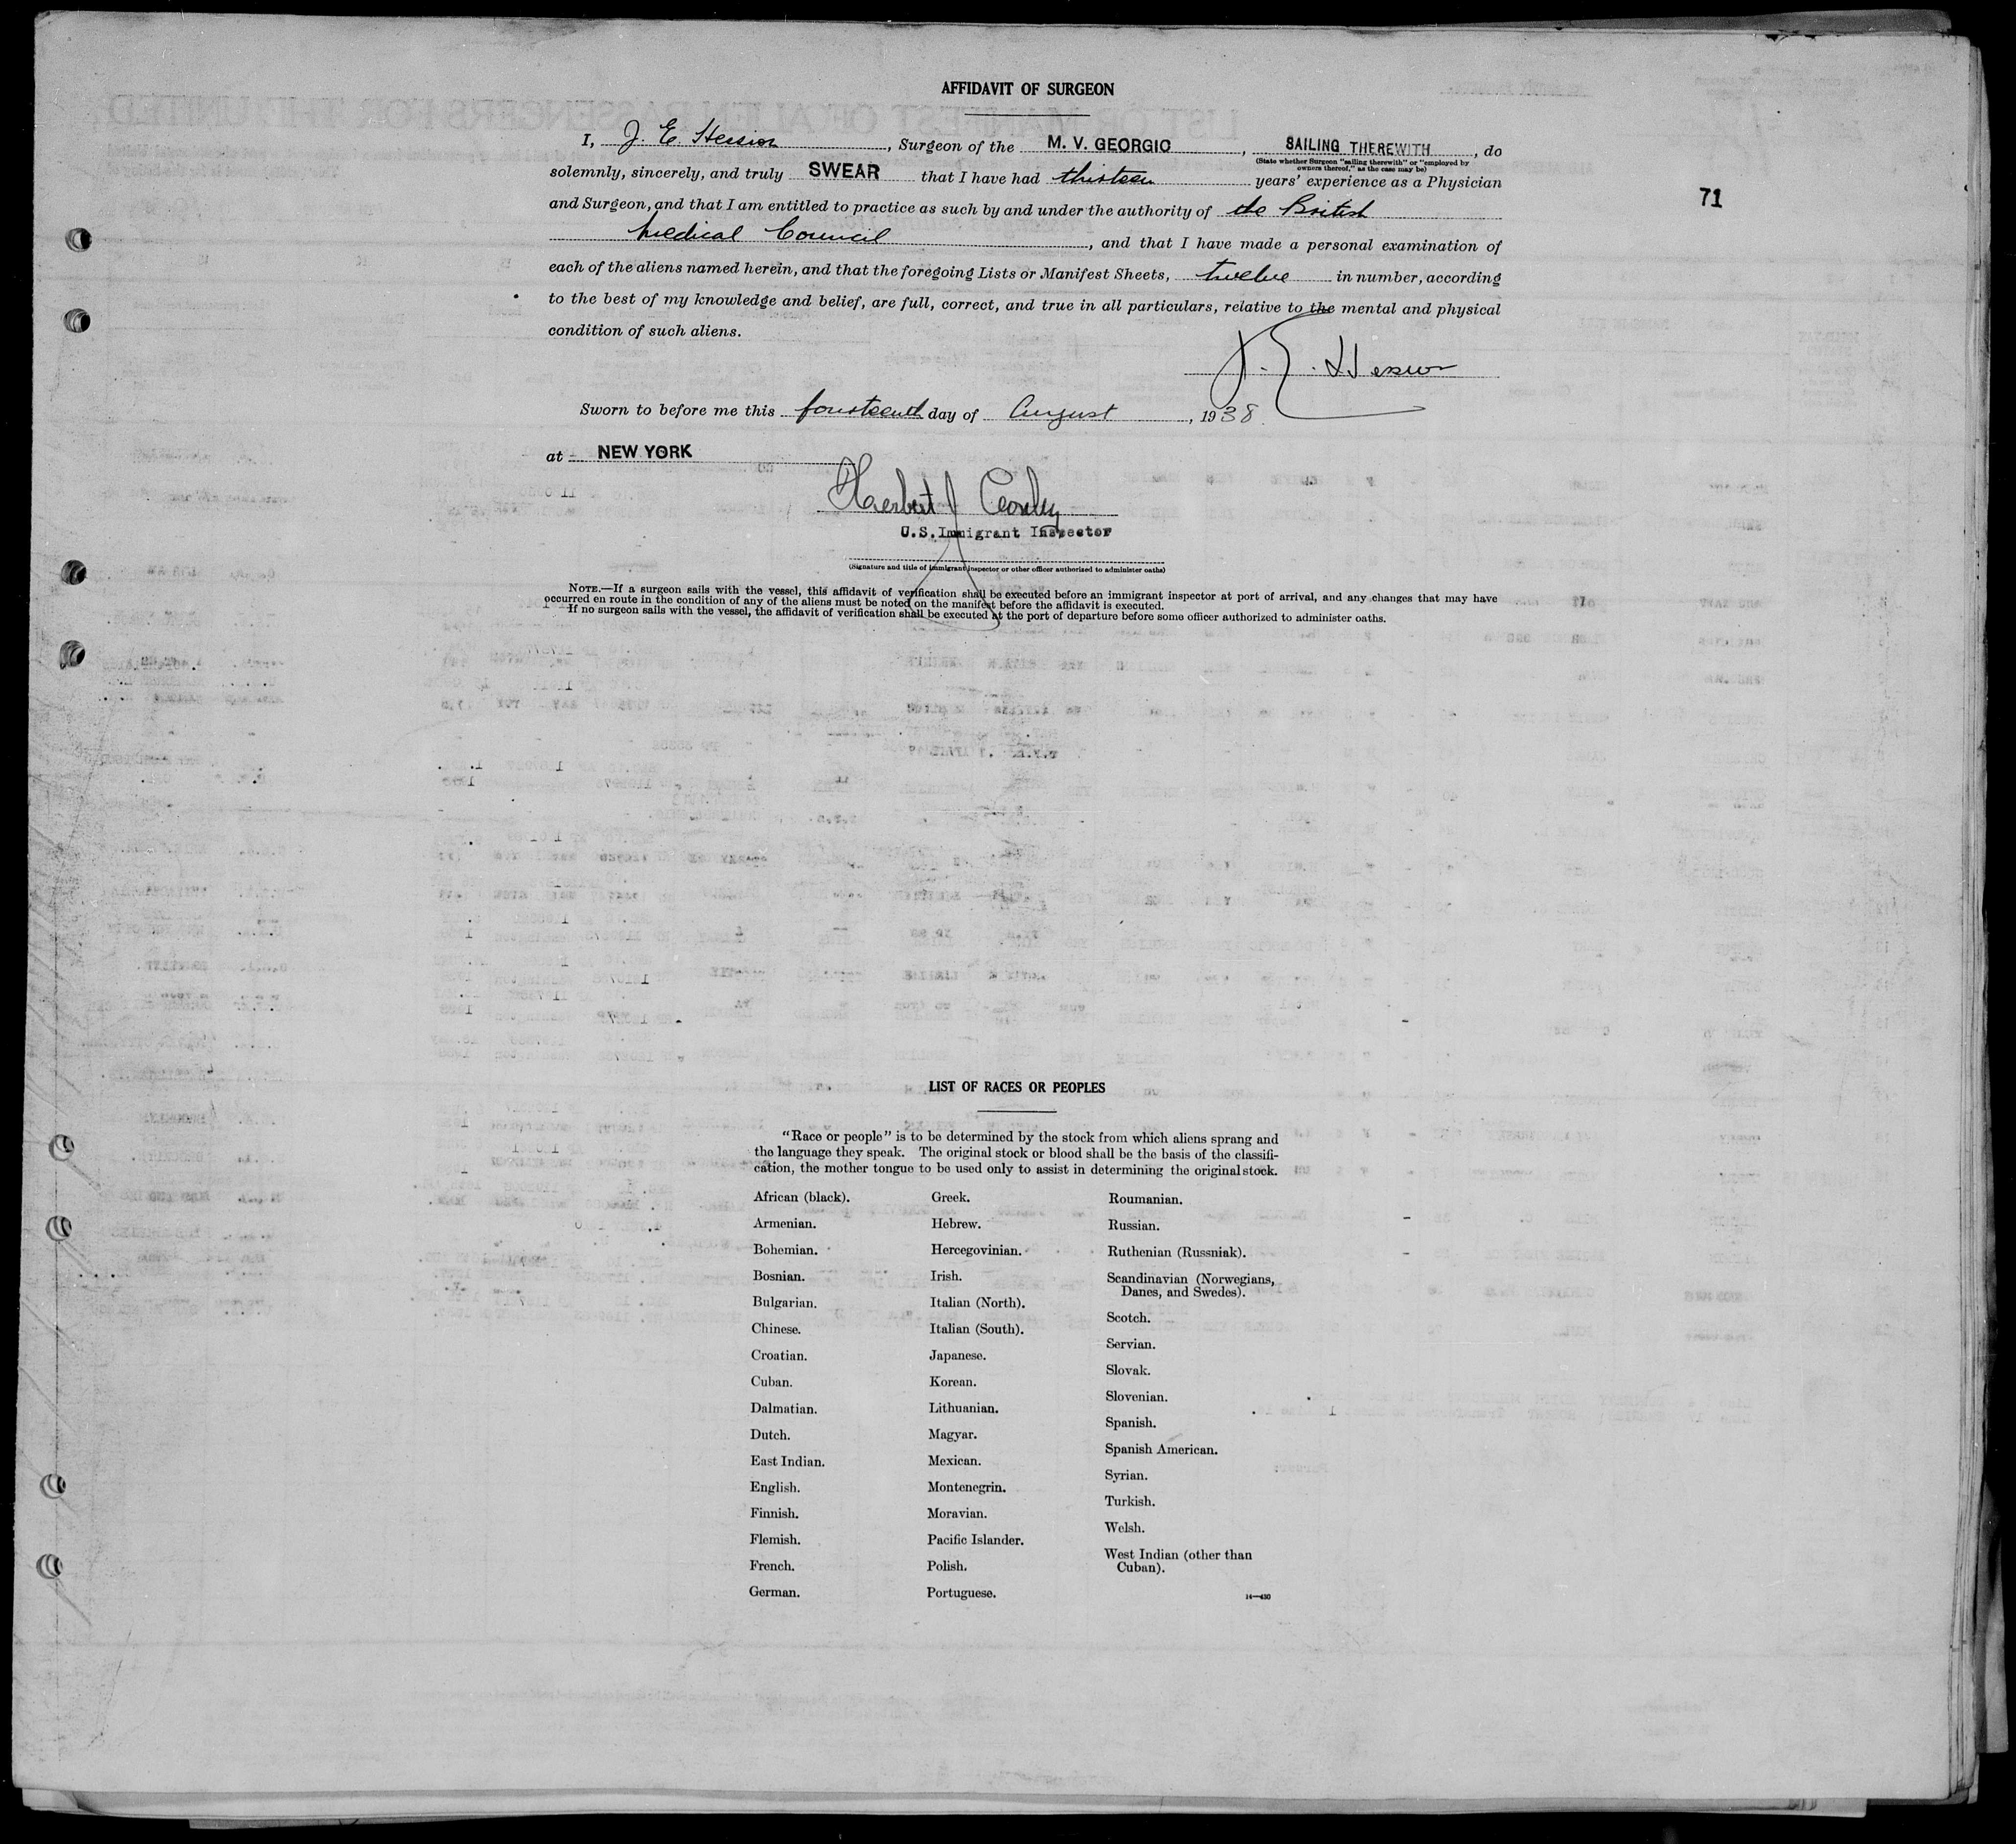 AFFIDAVIT OF SURGEON
I, J. E. Hession, Surgeon of the M. V. GEORGIC, SAILING THEREWITH, do
(State whether Surgeon "sailing therewith" or "employed by
owners thereof," as the case may be)
solemnly, sincerely, and truly SWEAR that I have had thirteen years' experience as a Physician
71
and Surgeon, and that I am entitled to practice as such by and under the authority of the British
Medical Council, and that I have made a personal examination of
each of the aliens named herein, and that the foregoing Lists or Manifest Sheets, twelve in number, according
to the best of my knowledge and belief, are full, correct, and true in all particulars, relative to the mental and physical
condition of such aliens.
J. E. Hession
Sworn to before me this fourteenth day of August, 1938.
at NEW YORK
Herbert J
U.S. Immigrant Inspector
(Signature and title of immigrant inspector or other officer authorized to administer oaths)
NOTE.—If a surgeon sails with the vessel, this affidavit of verification shall be executed before an immigrant inspector at port of arrival, and any changes that may have
occurred en route in the condition of any of the aliens must be noted on the manifest before the affidavit is executed.
If no surgeon sails with the vessel, the affidavit of verification shall be executed at the port of departure before some officer authorized to administer oaths.
LIST OF RACES OR PEOPLES
"Race or people" is to be determined by the stock from which aliens sprang and
the language they speak. The original stock or blood shall be the basis of the classifi-
cation, the mother tongue to be used only to assist in determining the original stock.
African (black).
Armenian.
Bohemian.
Bosnian.
Bulgarian.
Chinese.
Croatian.
Cuban.
Dalmatian.
Dutch.
East Indian.
English.
Finnish.
Flemish.
French.
German.
Greek.
Hebrew.
Hercegovinian.
Irish.
Italian (North).
Italian (South).
Japanese.
Korean.
Lithuanian.
Magyar.
Mexican.
Montenegrin.
Moravian.
Pacific Islander.
Polish.
Portuguese.
Roumanian.
Russian.
Ruthenian (Russniak).
Scandinavian (Norwegians,
Danes, and Swedes).
Scotch.
Servian.
Slovak.
Slovenian.
Spanish.
Spanish American.
Syrian.
Turkish.
Welsh.
West Indian (other than
Cuban).
14—430